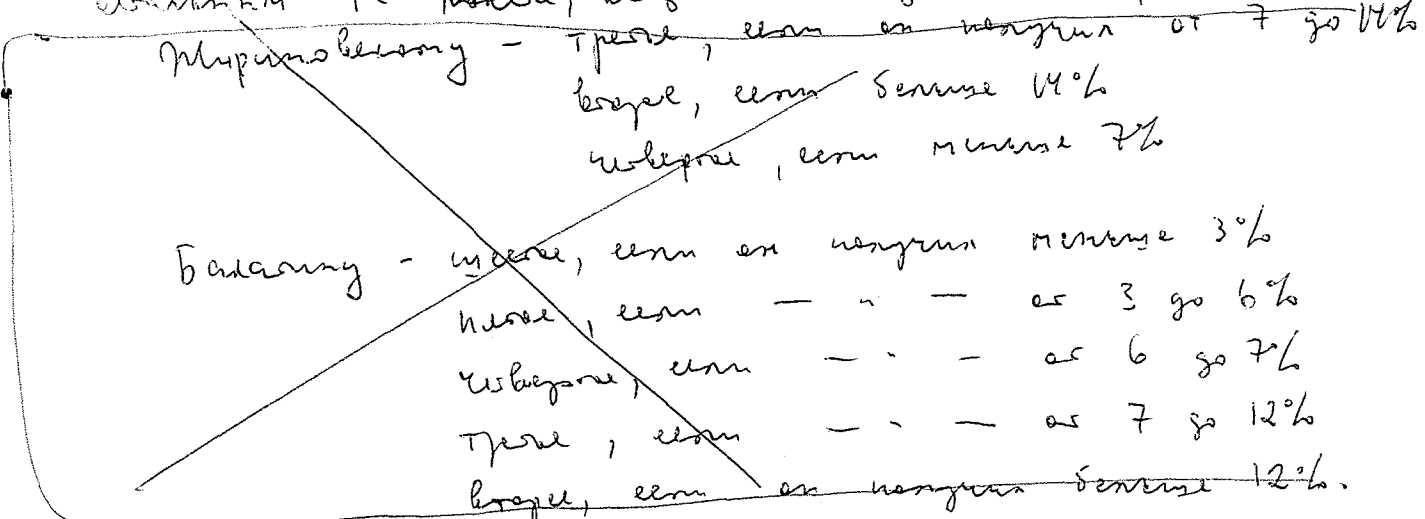 Жириновскому – третье, если он получил от 7 до 14%
второе, если больше 14%
четвертое, если меньше 7%
Бакатину – шестое, если он получил меньше 3%
пятое, если — " — от 3 до 6%
четвертое, если — " — от 6 до 7%
третье, если — " — от 7 до 12%
второе, если он получил больше 12%.